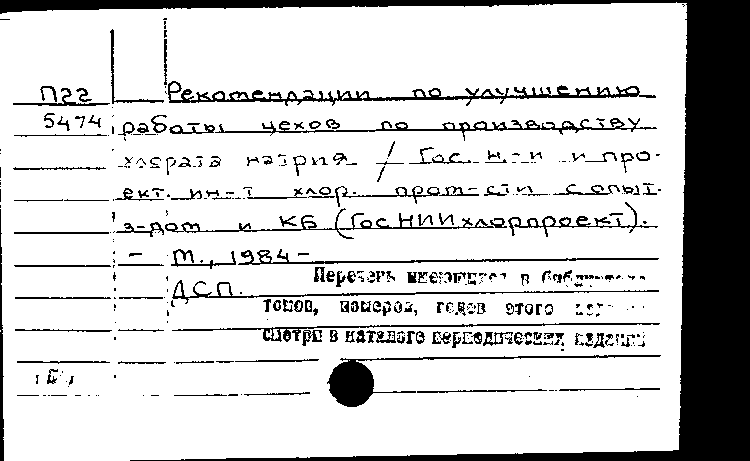 П22 Рекомендации по улучшению
5474 работы цехов по производству
хлората натрия / Гос. н.-и и про-
ект. ин-т хлор. пром-сти с опыт.
з-дом и КБ (ГосНИИхлорпроект).
- М., 1984 -
ДСП.
Перечень имеющихся в
томов, номеров, годов этого
смотри в каталоге периодических изданий